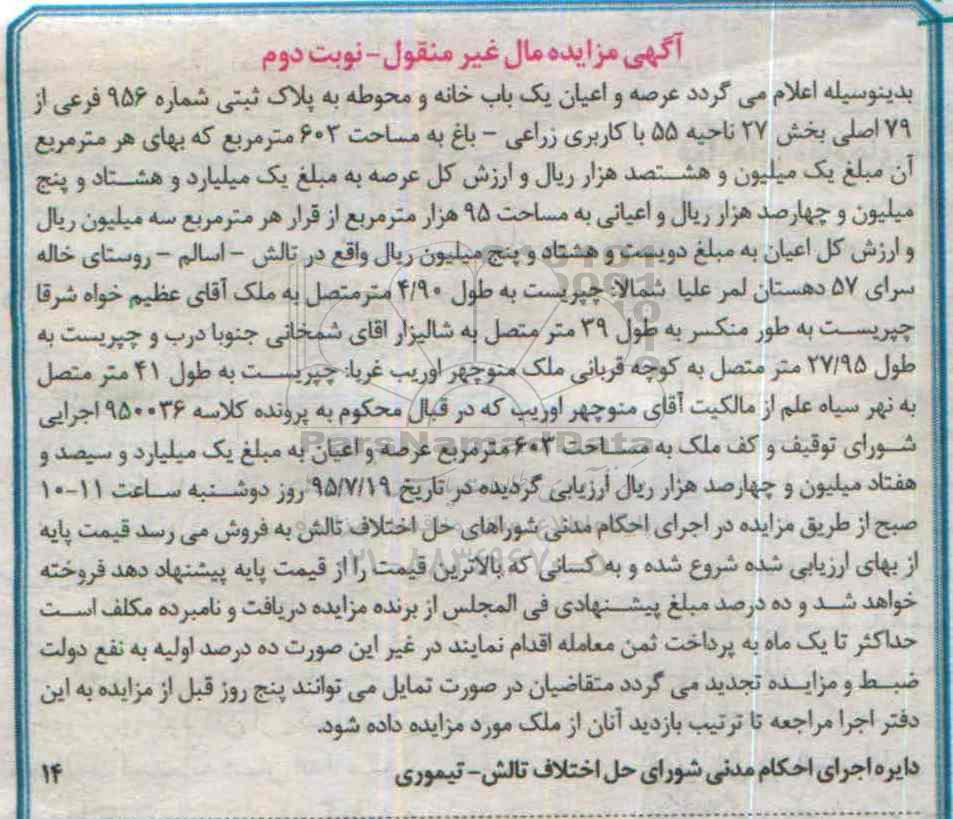 آگهی مزایده مال غیر منقول- نوبت دوم
بدینوسیله اعلام می گردد عرصه و اعیان یک باب خانه و محوطه به پلاک ثبتی شماره ۹۵۶ فرعی از
۷۹ اصلی بخش ۲۷ ناحیه ۵۵ با کاربری زراعی - باغ به مساحت ۶۰۳ مترمربع که بهای هر مترمربع
آن مبلغ یک میلیون و هشتصد هزار ریال و ارزش کل عرصه به مبلغ یک میلیارد و هشتاد و پنج
میلیون و چهارصد هزار ریال و اعیانی به مساحت ۹۵ هزار مترمربع از قرار هر مترمربع سه میلیون ریال
و ارزش کل اعیان به مبلغ دویست و هشتاد و پنج میلیون ریال واقع در تالش - اسالم - روستای خاله
سرای ۵۷ دهستان لمر علیا شمالا: چپریست به طول ۴/۹۰ مترمتصل به ملک آقای عظیم خواه شرقا
چپریست به طور منکسر به طول ۳۹ متر متصل به شالیزار اقای شمخانی جنوبا درب و چپریست به
طول ۲۷/۹۵ متر متصل به کوچه قربانی ملک منوچهر اوریب غربا: چپریست به طول ۴۱ متر متصل
به نهر سیاه علم از مالکیت آقای منوچهر اوریب که در قبال محکوم به پرونده کلاسه ۹۵۰۰۳۶ اجرایی
شورای توقیف و کف ملک به مساحت ۶۰۳ مترمربع عرصه و اعیان به مبلغ یک میلیارد و سیصد و
هفتاد میلیون و چهارصد هزار ریال ارزیابی گردیده در تاریخ ۹۵/۷/۱۹ روز دوشنبه ساعت ۱۱-۱۰
صبح از طریق مزایده در اجرای احکام مدنی شوراهای حل اختلاف تالش به فروش می رسد قیمت پایه
از بهای ارزیابی شده شروع شده و به کسانی که بالاترین قیمت را از قیمت پایه پیشنهاد دهد فروخته
خواهد شد و ده درصد مبلغ پیشنهادی فی المجلس از برنده مزایده دریافت و نامبرده مکلف است
حداکثر تا یک ماه به پرداخت ثمن معامله اقدام نمایند در غیر این صورت ده درصد اولیه به نفع دولت
ضبط و مزایده تجدید می گردد متقاضیان در صورت تمایل می توانند پنج روز قبل از مزایده به این
دفتر اجرا مراجعه تا ترتیب بازدید آنان از ملک مورد مزایده داده شود.
دایره اجرای احکام مدنی شورای حل اختلاف تالش- تیموری ۱۴
ParsNamadData